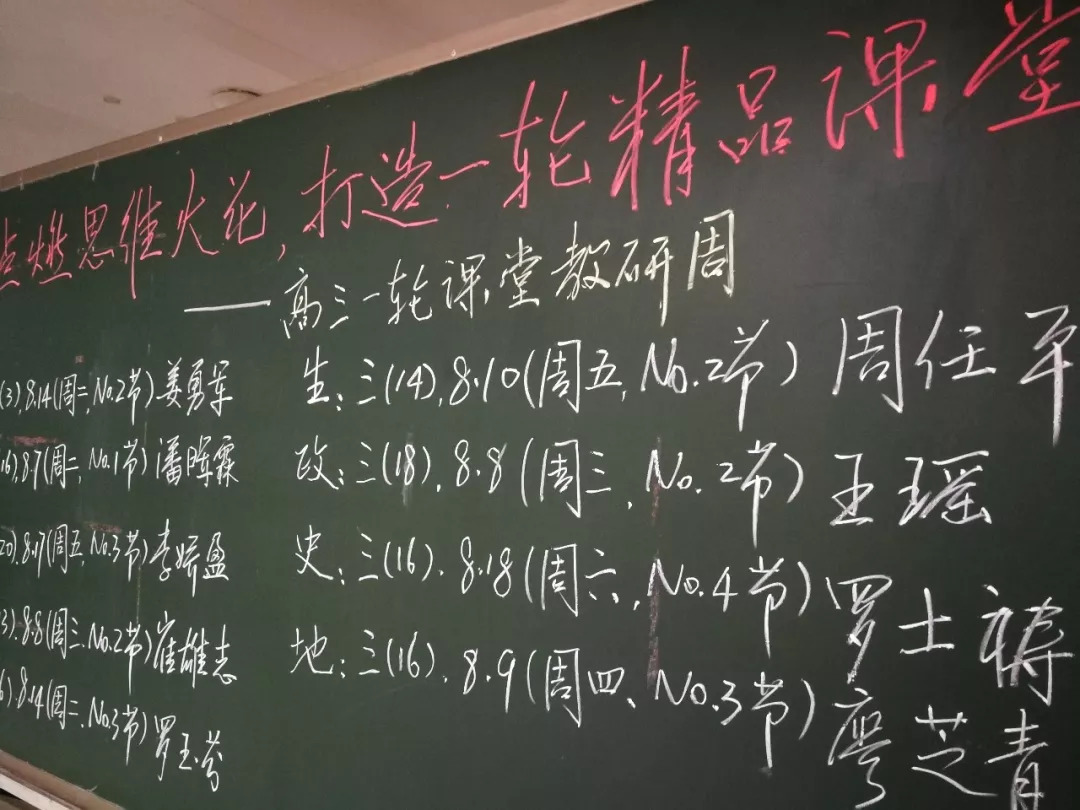 点燃思维火花,打造一轮精品课堂
——高三一轮课堂教研周
(3),8.14(周二,No.2节)姜勇军
16),8.7(周二,No.1节)潘晖霖
20).8.17(周五,No.3节)李娇盈
3).8.8(周三.No.2节)崔雄志
6).8.14(周二、No.3节)罗玉芬
生:三(14),8.10(周五,No.2节)周任平
政:三(18),8.8(周三,No.2节)王瑶
史:三(16).8.18(周六,No.4节)罗士祷
地:三(16).8.9(周四、No.3节)廖芝青